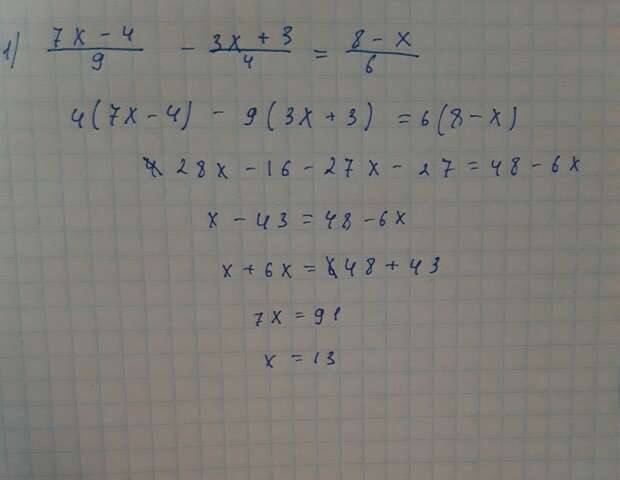 1) (7x - 4)/9 - (3x + 3)/4 = (8 - x)/6
4(7x - 4) - 9(3x + 3) = 6(8 - x)
28x - 16 - 27x - 27 = 48 - 6x
x - 43 = 48 - 6x
x + 6x = 48 + 43
7x = 91
x = 13